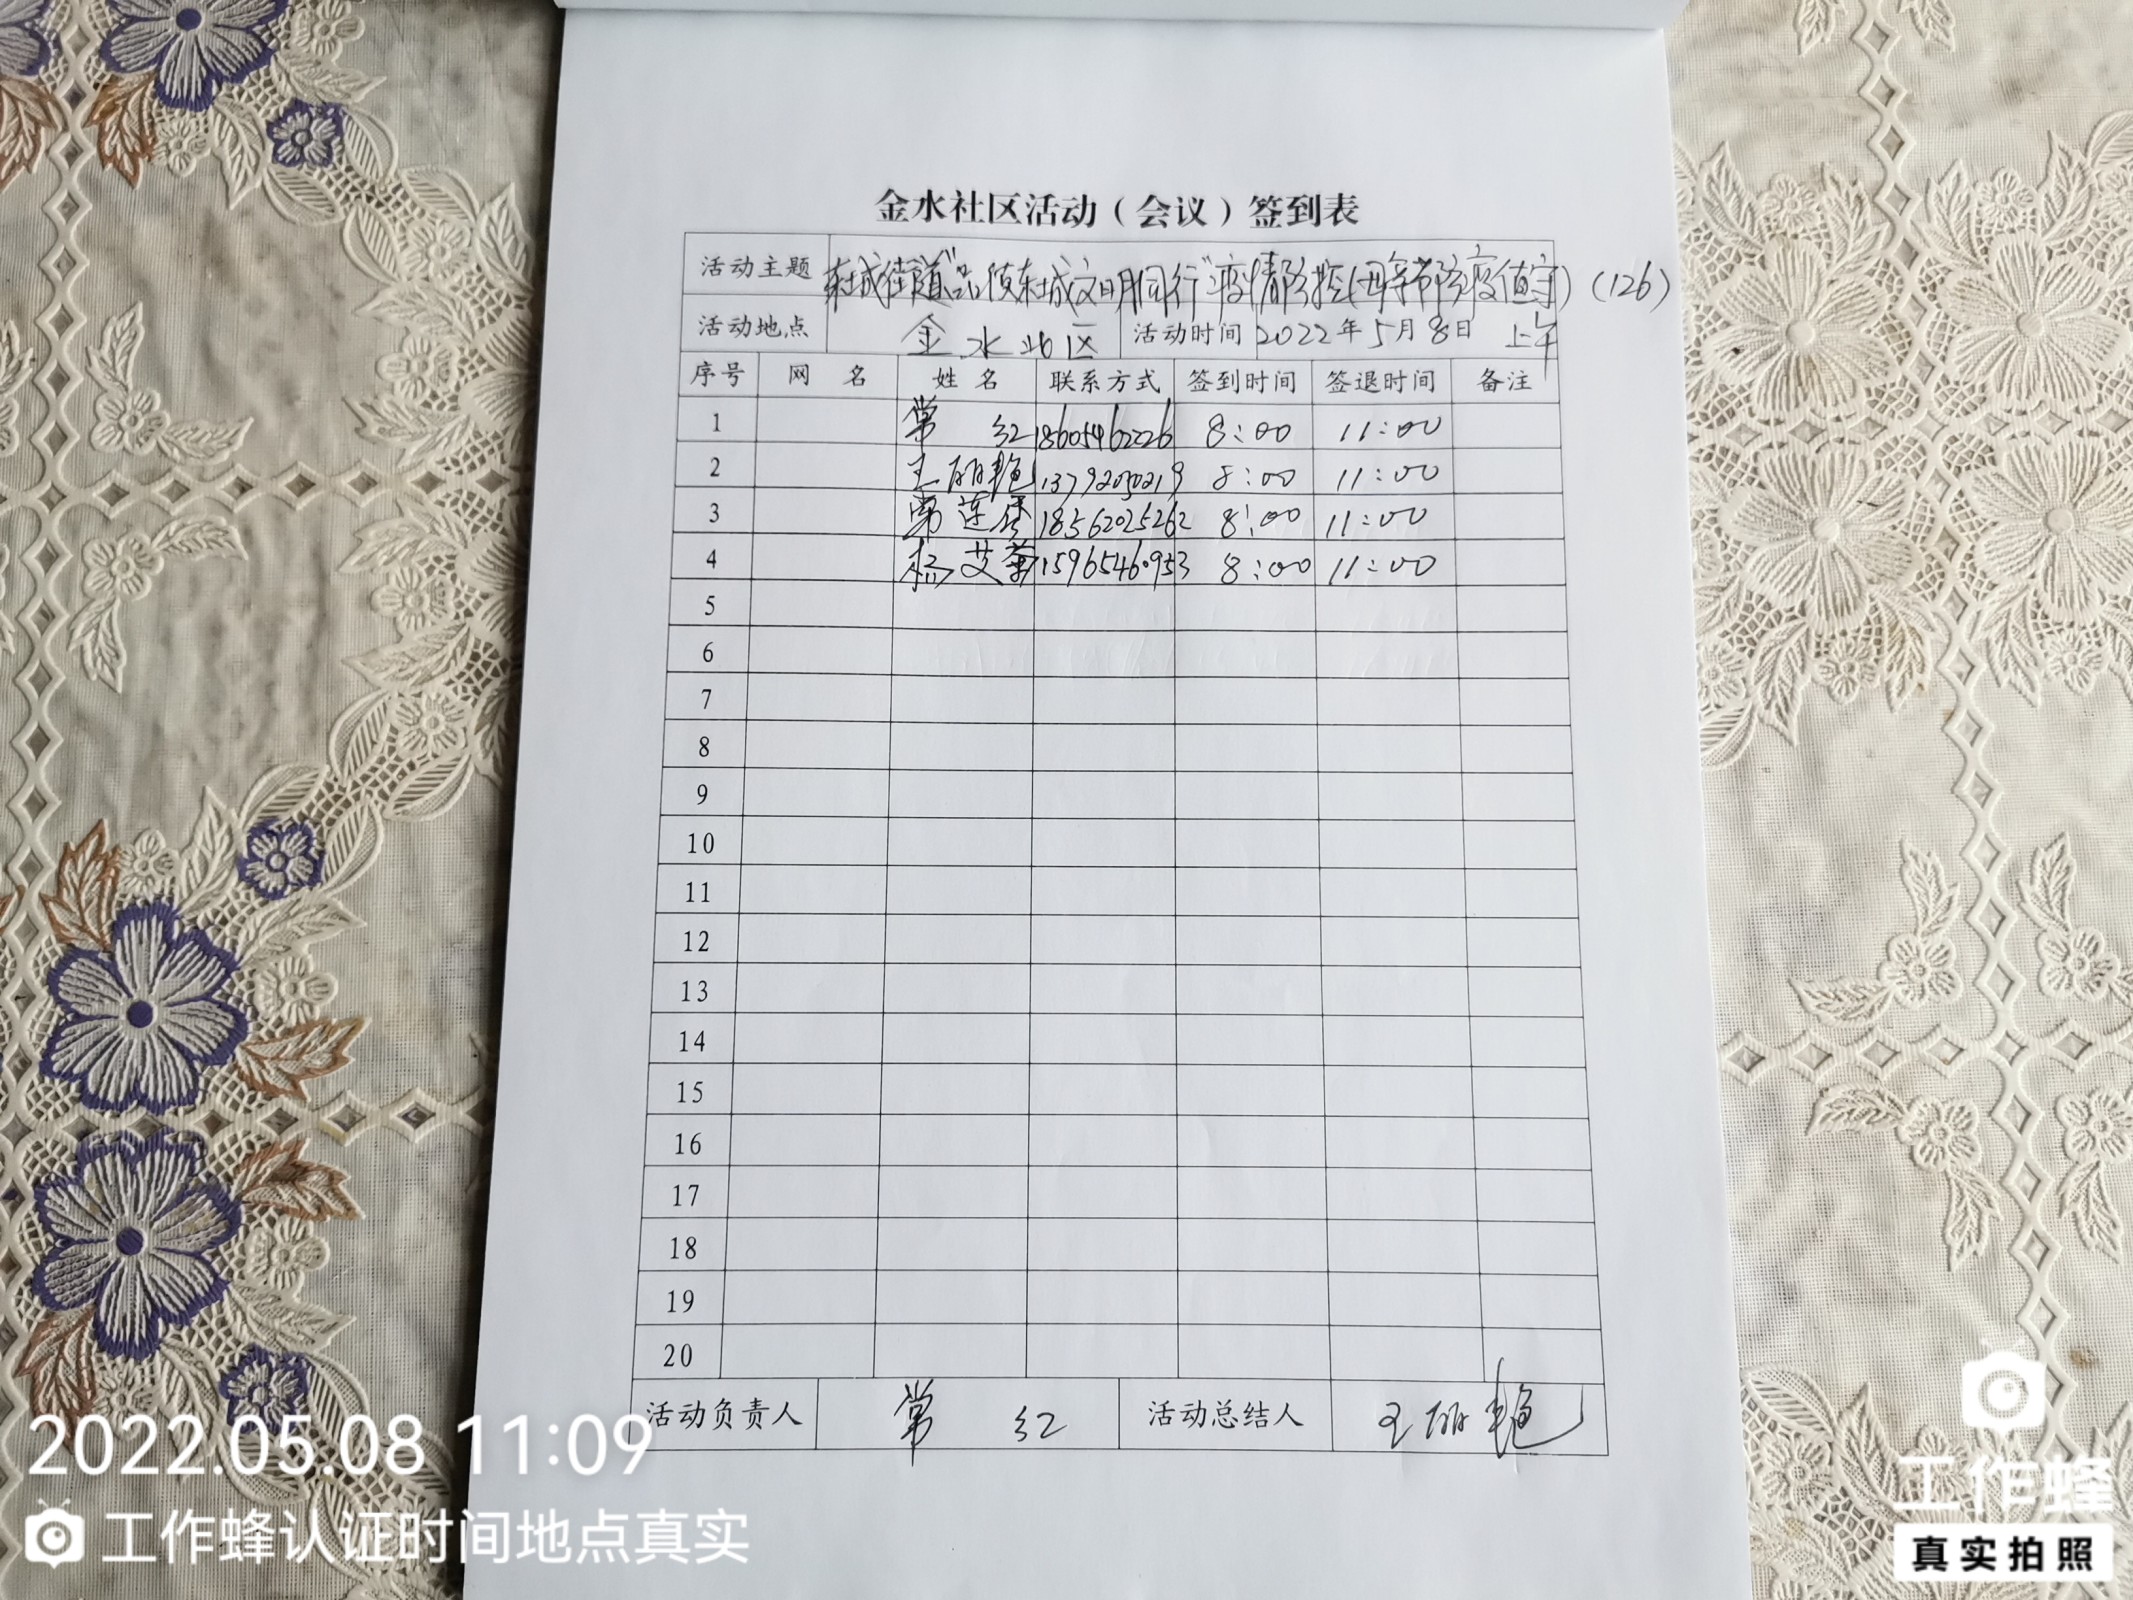 金水社区活动（会议）签到表
活动主题 东城街道"品质东城文明同行"疫情防控(母亲节防疫值守)（126）
活动地点 金水北区 活动时间 2022年5月8日 上午
序号 网名 姓名 联系方式 签到时间 签退时间 备注
1 常红 18605462226 8:00 11:00
2 王丽艳 13792050219 8:00 11:00
3 常莲 18562025262 8:00 11:00
4 杨艾 15965460953 8:00 11:00
5
6
7
8
9
10
11
12
13
14
15
16
17
18
19
20
活动负责人 常红 活动总结人 王丽艳
2022.05.08 11:09
工作蜂认证时间地点真实
工作蜂
真实拍照